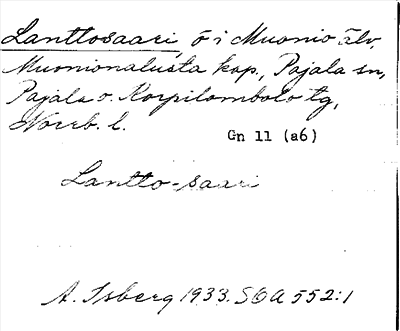 Lanttosaari, ö i Muonio älv,
Muonionalusta kap., Pajala sn,
Pajala o. Korpilombolo tg,
Norrb. l.
Gn 11 (a6)
Lantto-saari
A. Isberg 1933. SOA 552:1